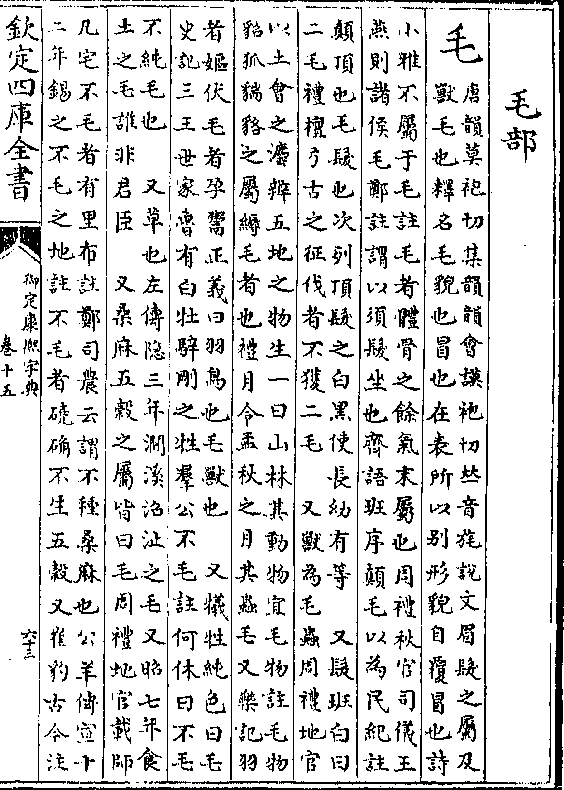 毛部
毛
唐韻莫袍切集韻韻會謨袍切𠀤音旄說文眉髮之屬及
獸毛也釋名毛貌也冒也在表所以别形貌自覆冒也詩
小雅不屬于毛註毛者體骨之餘氣末屬也周禮秋官司儀王
燕則諸侯毛鄭註謂以須髮坐也齊語班序顛毛以為民紀註
顛頂也毛髮也次列頂髮之白黑使長幼有等　又髮班白曰
二毛禮檀弓古之征伐者不獲二毛　又獸為毛蟲周禮地官
以土會之灋辨五地之物生一曰山林其動物宜毛物註毛物
貂狐貒貉之屬縟毛者也禮月令孟秋之月其蟲毛又樂記羽
者嫗伏毛者孕鬻正義曰羽鳥也毛獸也　又犧牲純色曰毛
史記三王世家魯有白牡騂剛之牲羣公不毛註何休曰不毛
不純毛也　又草也左傳隱三年澗溪沼沚之毛又昭七年食
土之毛誰非君臣　又桑麻五穀之屬皆曰毛周禮地官載師
凡宅不毛者有里布註鄭司農云謂不種桑麻也公羊傳宣十
二年錫之不毛之地註不毛者磽确不生五穀又崔豹古今注
欽定四庫全書
御定康熙字典
卷十五
六十三